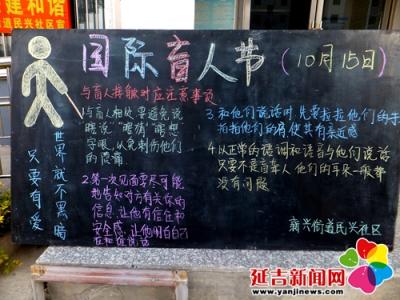 建和谐
道民兴社区宣
国际盲人节（10月15日）
与盲人接触时应注意事项
1.与盲人相处要避免说
眼说"瞎
守眼,以免刺伤他们
的
2.第一次见面要尽可能
地告知对方有关你的
信息,让他有信任和
安全感,让他明白
3.和他们说话时,先要拉拉他们的手
拍拍他们的肩,使其有亲近感
4.以正常的语调和语言与他们说话
只要不是盲聋人,他们的耳朵一般都
没有问题
只要有爱
世界就不黑暗
新兴街道民兴社区
延吉新闻网
www.yanjinews.com